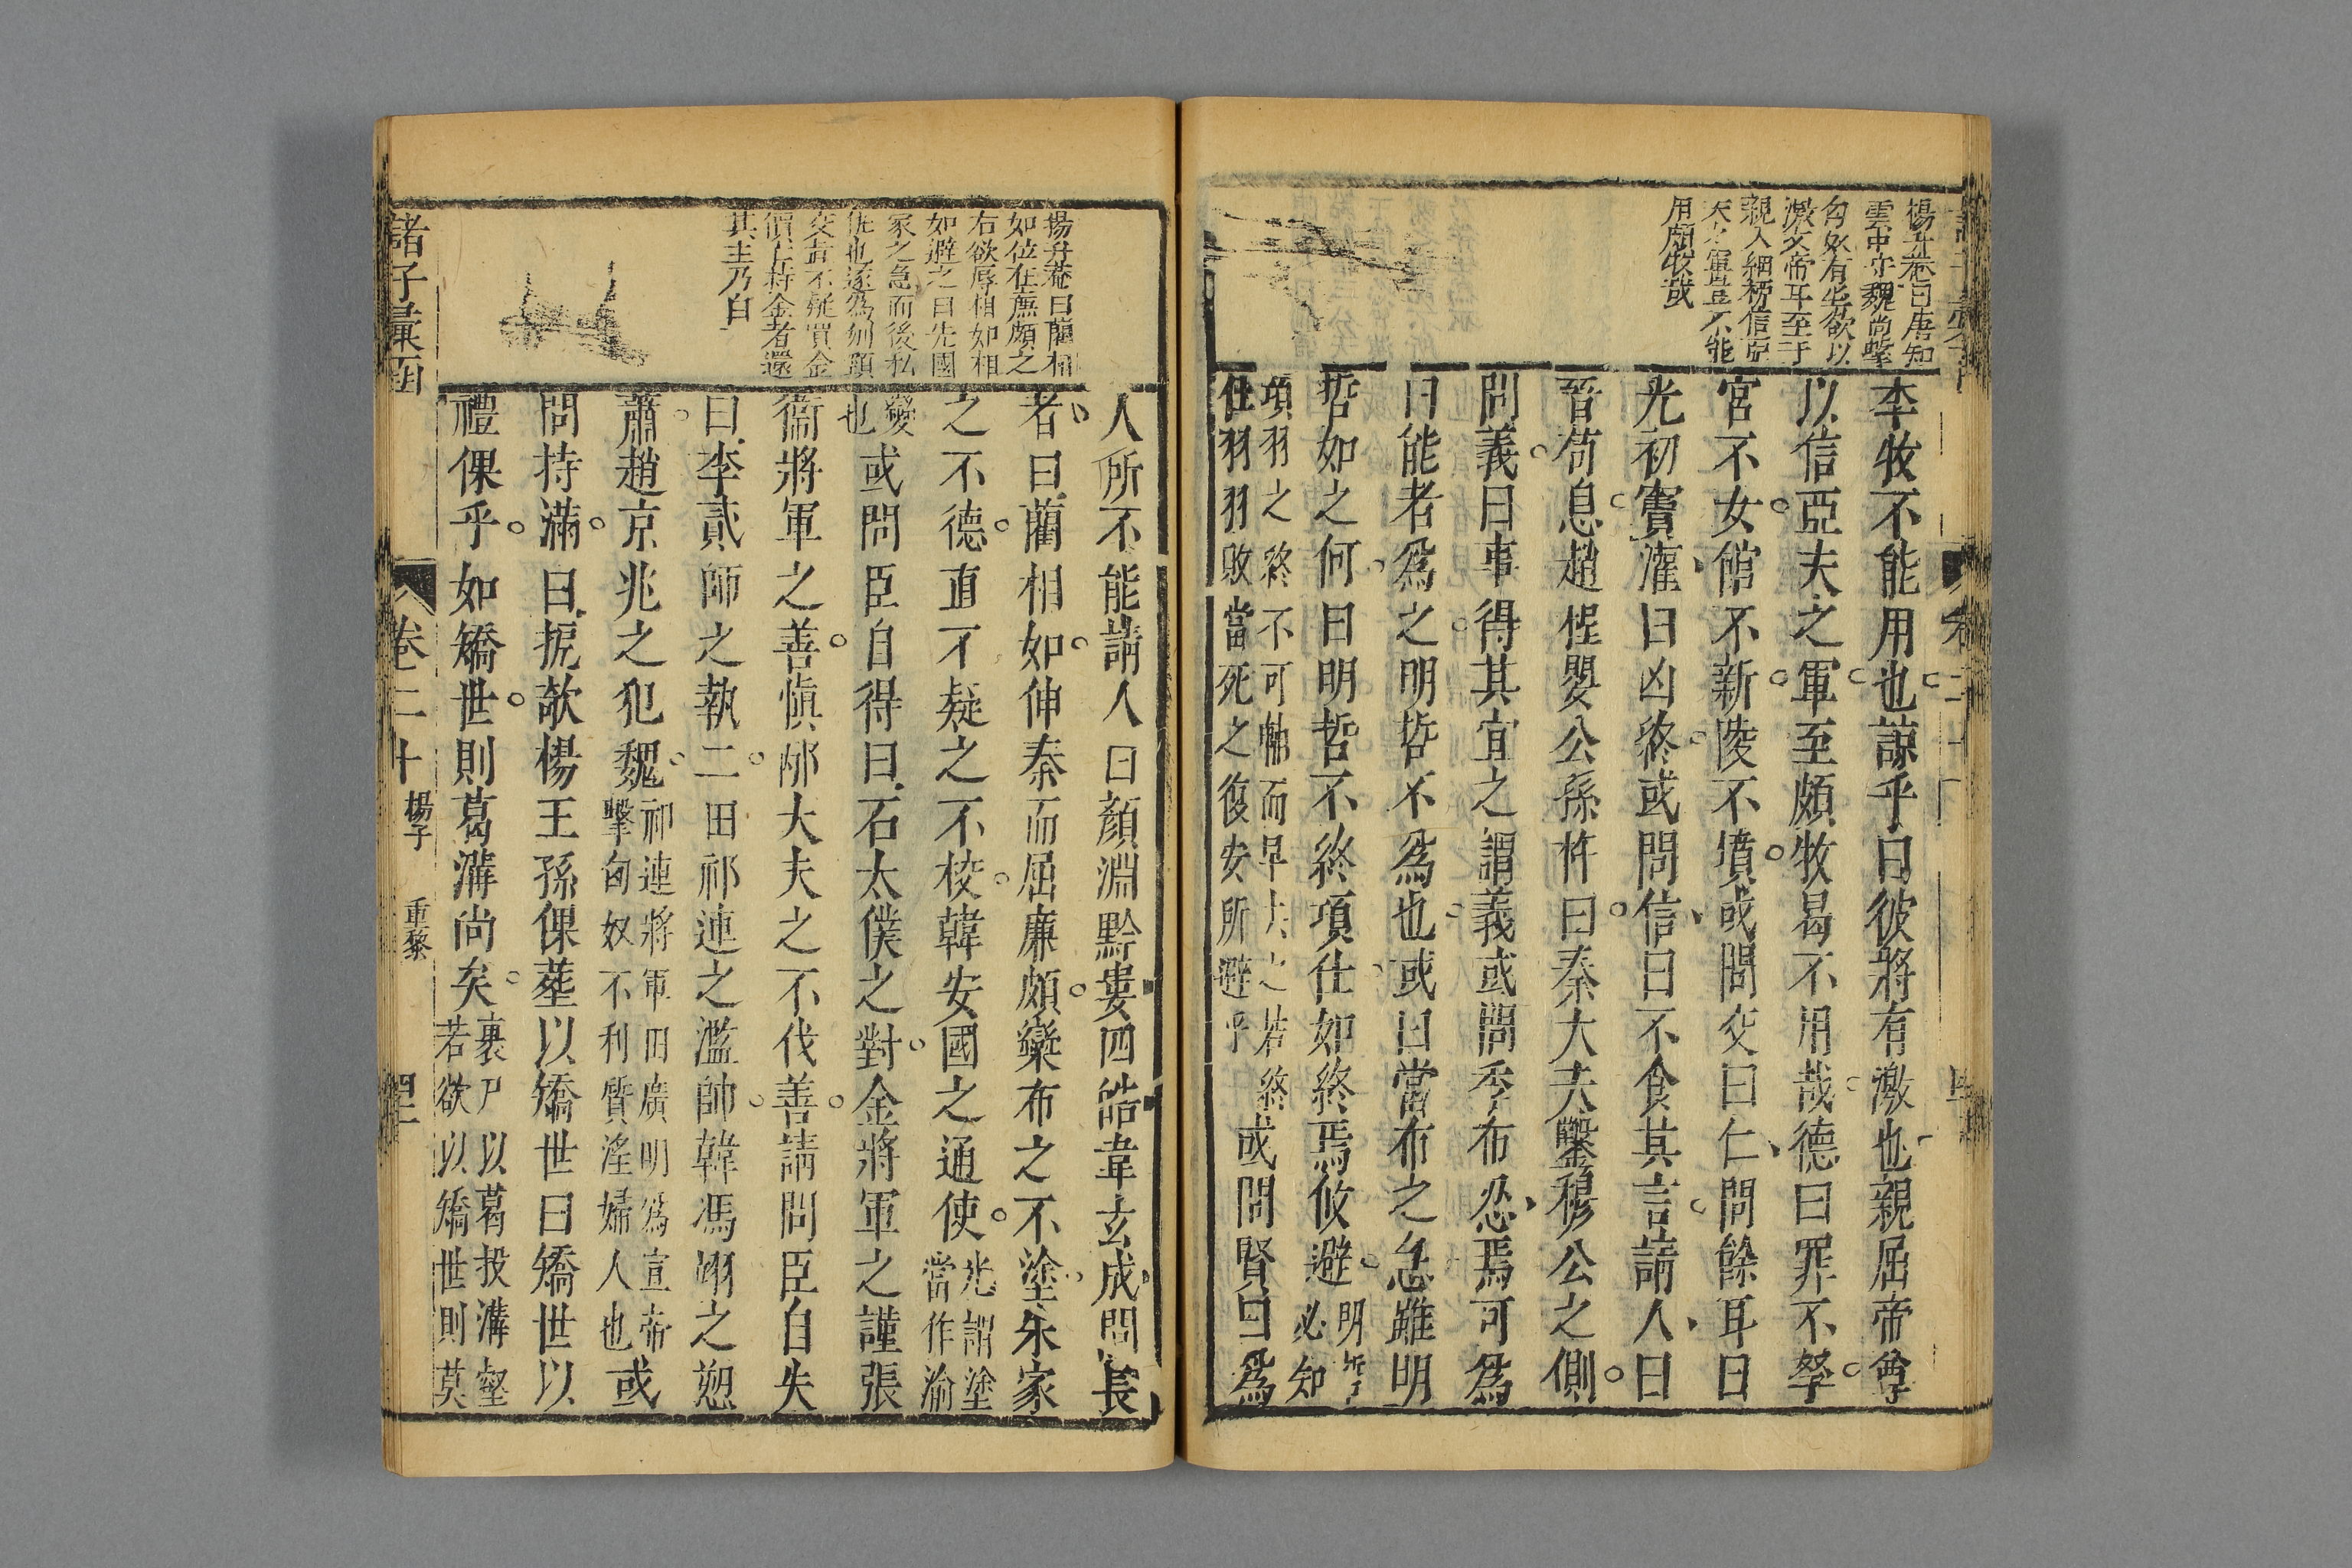 楊升菴曰唐知
雲中守魏尚擊
匈奴有
激文帝耳至于
親入細柳信亞
夫之軍豈不能
用頗牧哉
李牧不能用也諒乎曰彼將有激也親屈帝尊
以信亞夫之軍至頗牧曷不用哉德曰罪不孥
宮不女館不新陵不墳或問交曰仁問餘耳曰
光初竇灌曰凶終或問信曰不食其言請人曰
晉荀息趙程嬰公孫杵曰秦大夫鑿穆公之側
問義曰事得其宜之謂義或問季布忍焉可為
曰能者為之明哲不為也或曰當布之急雖明
哲如之何曰明哲不終項仕如終焉攸避明哲必知
項羽之終不可怫而早去之若終
仕羽羽敗當死之復安所避乎
或問賢曰為
人所不能請人曰顏淵黔婁四皓韋玄成問長
者曰藺相如伸秦而屈廉頗欒布之不塗朱家
之不德直不疑之不校韓安國之通使光謂塗當作渝
變也或問臣自得曰石太僕之對金將軍之謹張
衛將軍之善慎邴大夫之不伐善請問臣自失
曰李貳師之執二田祁連之濫帥韓馮翊之愬
蕭趙京兆之犯魏祁連將軍田廣明為宣帝擊匈奴不利質淫婦人也或
問持滿曰扼欹楊王孫倮葬以矯世曰矯世以
禮倮乎如矯世則葛溝尚矣裹尸以葛投溝壑若欲以矯世則莫
楊升菴曰藺相
如位在廉頗之
右欲辱相如相
如避之曰先國
家之急而後私
仇也遂為刎頸
交直不疑買金
償亡持金者還
其主乃白
諸子彙函
卷二十
楊子
重黎